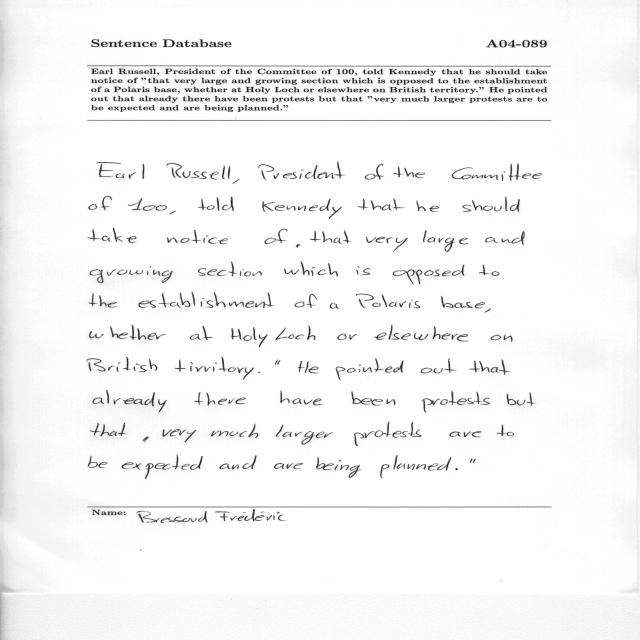 Sentence Database A04-089
Earl Russell, President of the Committee of 100, told Kennedy that he should take
notice of "that very large and growing section which is opposed to the establishment
of a Polaris base, whether at Holy Loch or elsewhere on British territory." He pointed
out that already there have been protests but that "very much larger protests are to
be expected and are being planned."
Earl Russell, President of the Committee
of 100, told Kennedy that he should
take notice of , that very large and
growing section which is opposed to
the establishment of a Polaris base,
whether at Holy Loch or elsewhere on
British tirritory. " He pointed out that
already there have been protests but
that , very much larger protests are to
be expected and are being planned. "
Name: Bressoud Frédéric